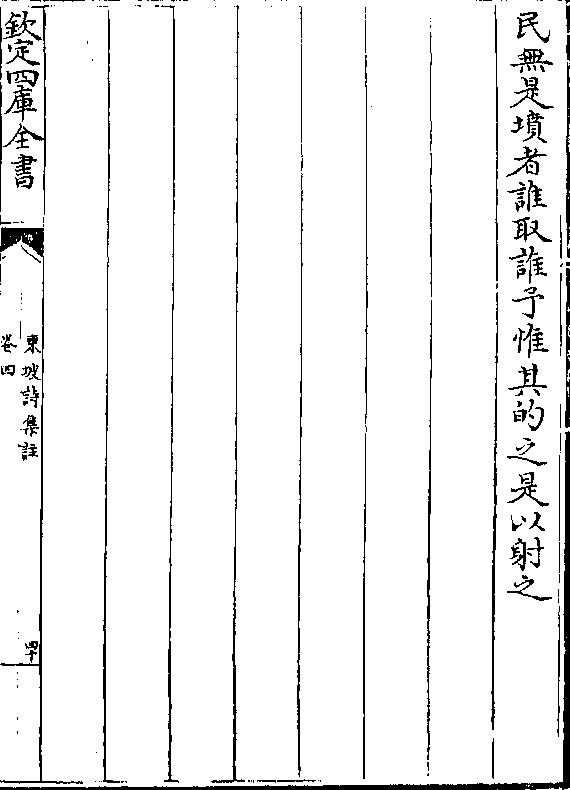 民無是墳者誰取誰予惟其的之是以射之
欽定四庫全書
東坡詩集註
卷四
四十